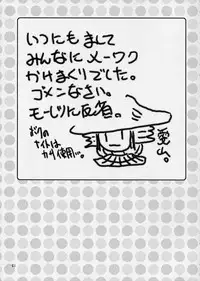 いつにもまして
みんなにメーワク
かけまくりでした。
ゴメンなさい。
モーレツに反省。
おりの
ナイトは
カサ使用。
愛山。